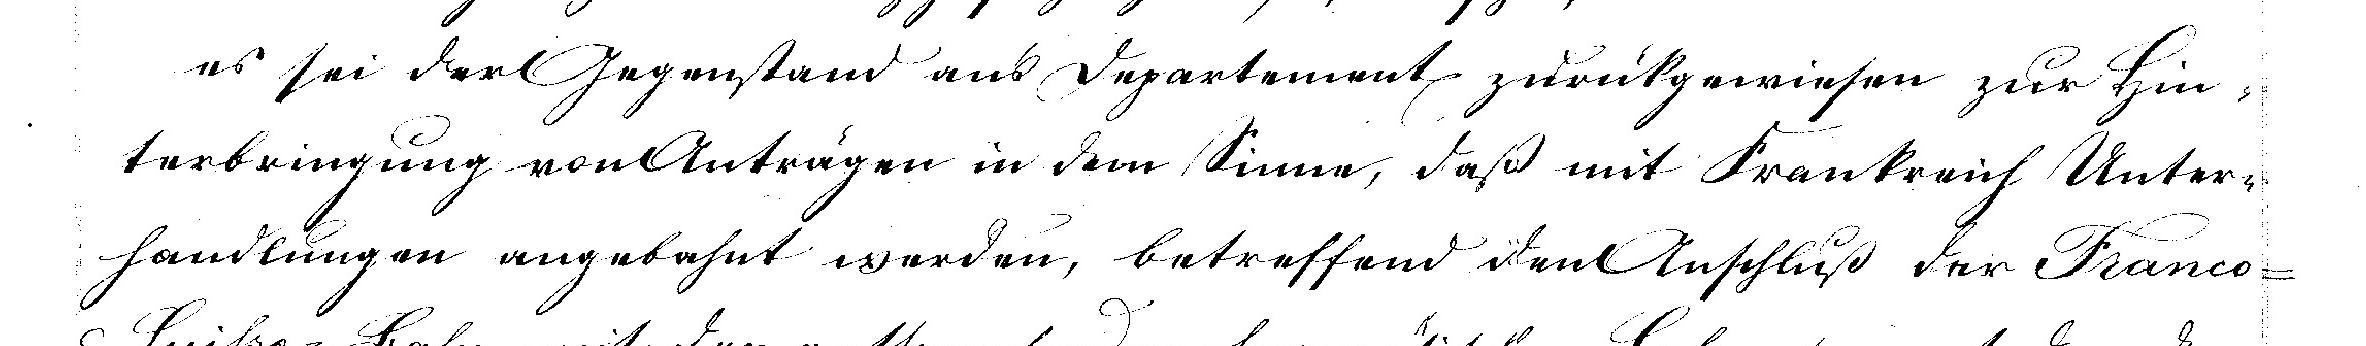 es sei der Gegenstand ans Departement zurükgewiesen zur Hin-
terbringung von Anträgen in dem Sinne, daß mit Frankreich Unter-
handlungen angebahnt werden, betreffend den Anschluß der Franco-